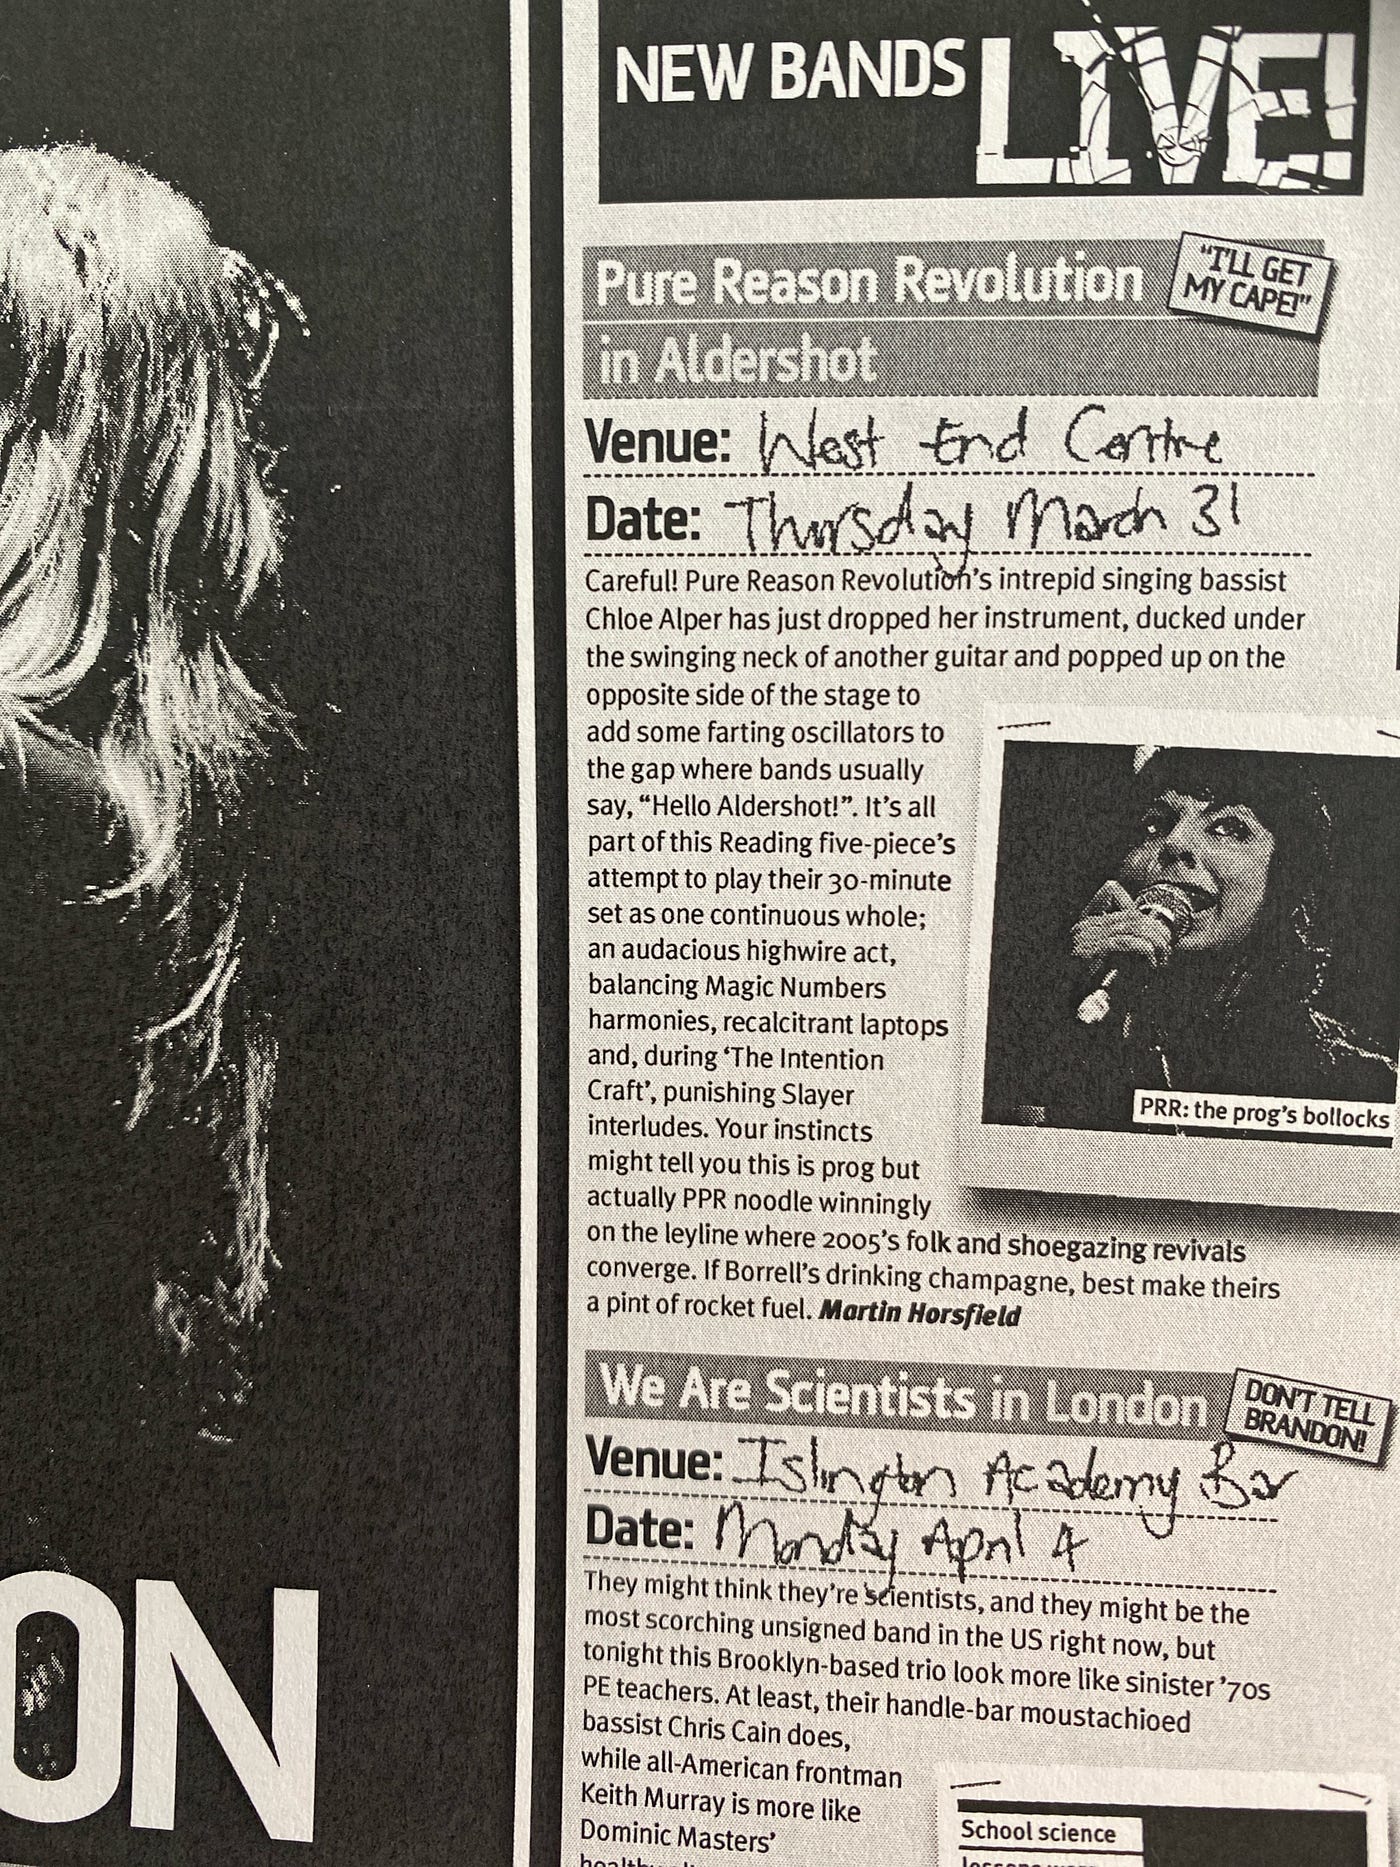 NEW BANDS LIVE!
Pure Reason Revolution
in Aldershot
"I'LL GET
MY CAPE!"
Venue: West End Centre
Date: Thursday March 31
Careful! Pure Reason Revolution's intrepid singing bassist
Chloe Alper has just dropped her instrument, ducked under
the swinging neck of another guitar and popped up on the
opposite side of the stage to
add some farting oscillators to
the gap where bands usually
say, "Hello Aldershot!". It's all
part of this Reading five-piece's
attempt to play their 30-minute
set as one continuous whole;
an audacious highwire act,
balancing Magic Numbers
harmonies, recalcitrant laptops
and, during 'The Intention
Craft', punishing Slayer
interludes. Your instincts
might tell you this is prog but
actually PPR noodle winningly
on the leyline where 2005's folk and shoegazing revivals
converge. If Borrell's drinking champagne, best make theirs
a pint of rocket fuel. Martin Horsfield
PRR: the prog's bollocks
We Are Scientists in London
DON'T TELL
BRANDON!
Venue: Islington Academy Bar
Date: Monday April 4
They might think they're scientists, and they might be the
most scorching unsigned band in the US right now, but
tonight this Brooklyn-based trio look more like sinister '70s
PE teachers. At least, their handle-bar moustachioed
bassist Chris Cain does,
while all-American frontman
Keith Murray is more like
Dominic Masters'
School science
ON